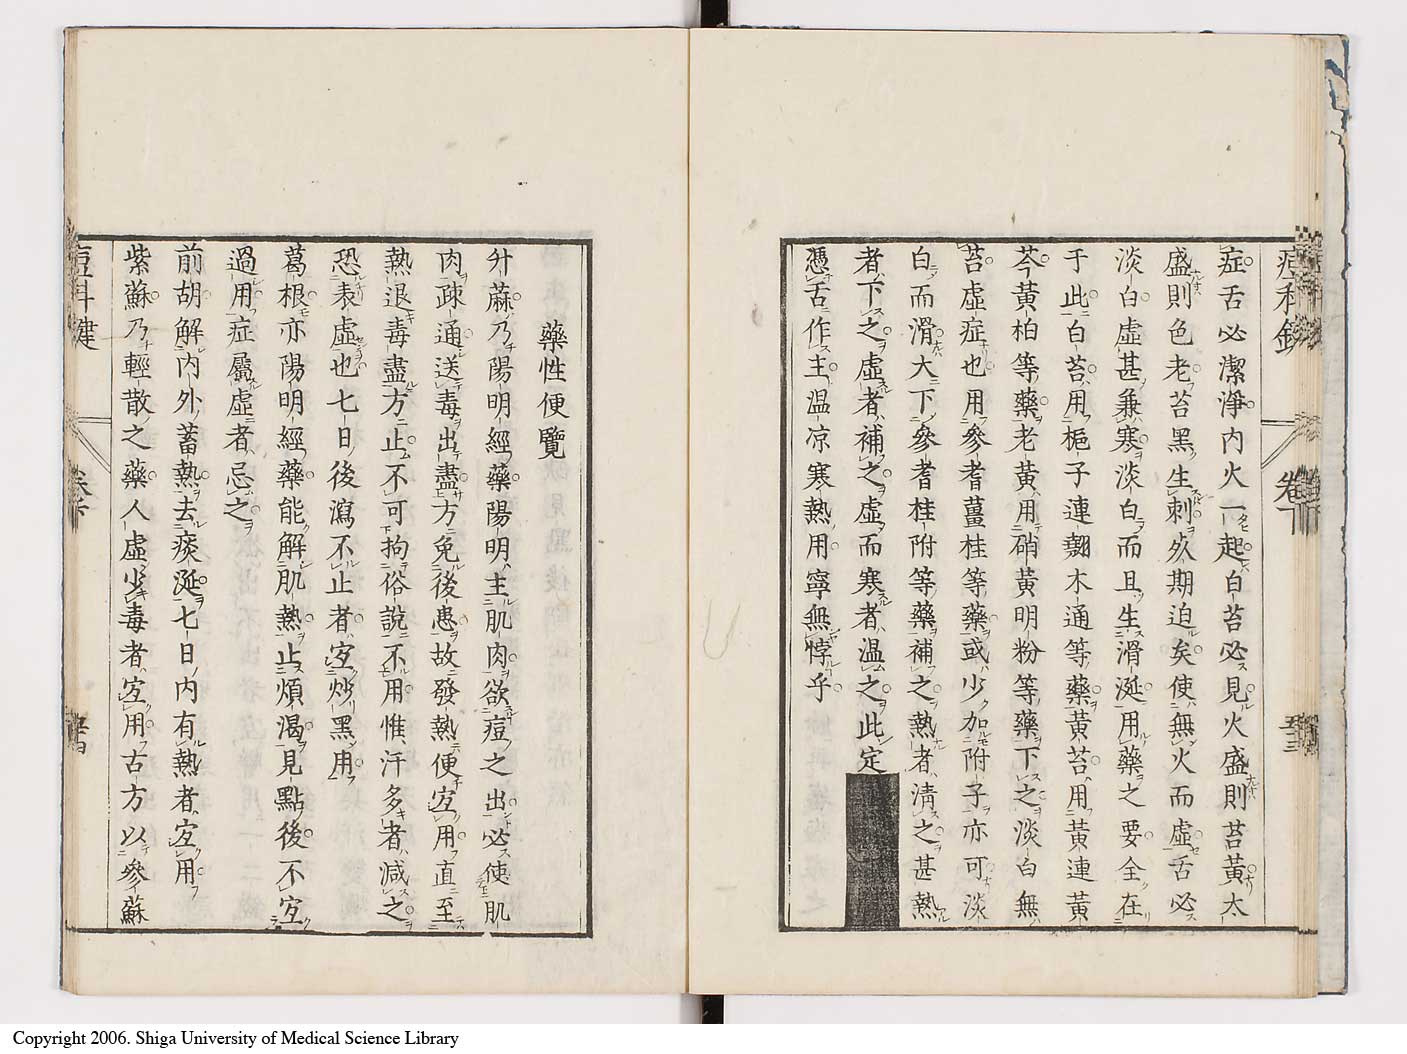 症舌必潔淨内火一起白苔必見火盛則苔黃太
盛則色老苔黑生刺灰期迫矣使無火而虛舌必
淡白虛甚兼寒淡白而且生滑涎用藥之要全在
于此白苔用梔子連翹木通等藥黃苔用黃連黃
芩黃柏等藥老黃用硝黃明粉等藥下之淡白無
苔虛症也用參耆薑桂等藥或少加附子亦可淡
白而滑大下參耆桂附等藥補之熱者清之甚熱
者下之虛者補之虛而寒者温之此定
憑舌作主温凉寒熱用寧無悖乎
藥性便覽
升蔴乃陽明經藥陽明主肌肉欲痘之出必使肌
肉疎通送毒出盡方免後患故發熱便宜用直至
熱退毒盡方止不可拘俗說不用惟汗多者減之
恐表虛也七日後瀉不止者宜炒黑用
葛根亦陽明經藥能解肌熱止煩渴見點後不宜
過用症屬虛者忌之
前胡解内外蓄熱去痰涎七日内有熱者宜用
紫蘇乃輕散之藥人虛少毒者宜用古方以參蘇
Copyright 2006. Shiga University of Medical Science Library